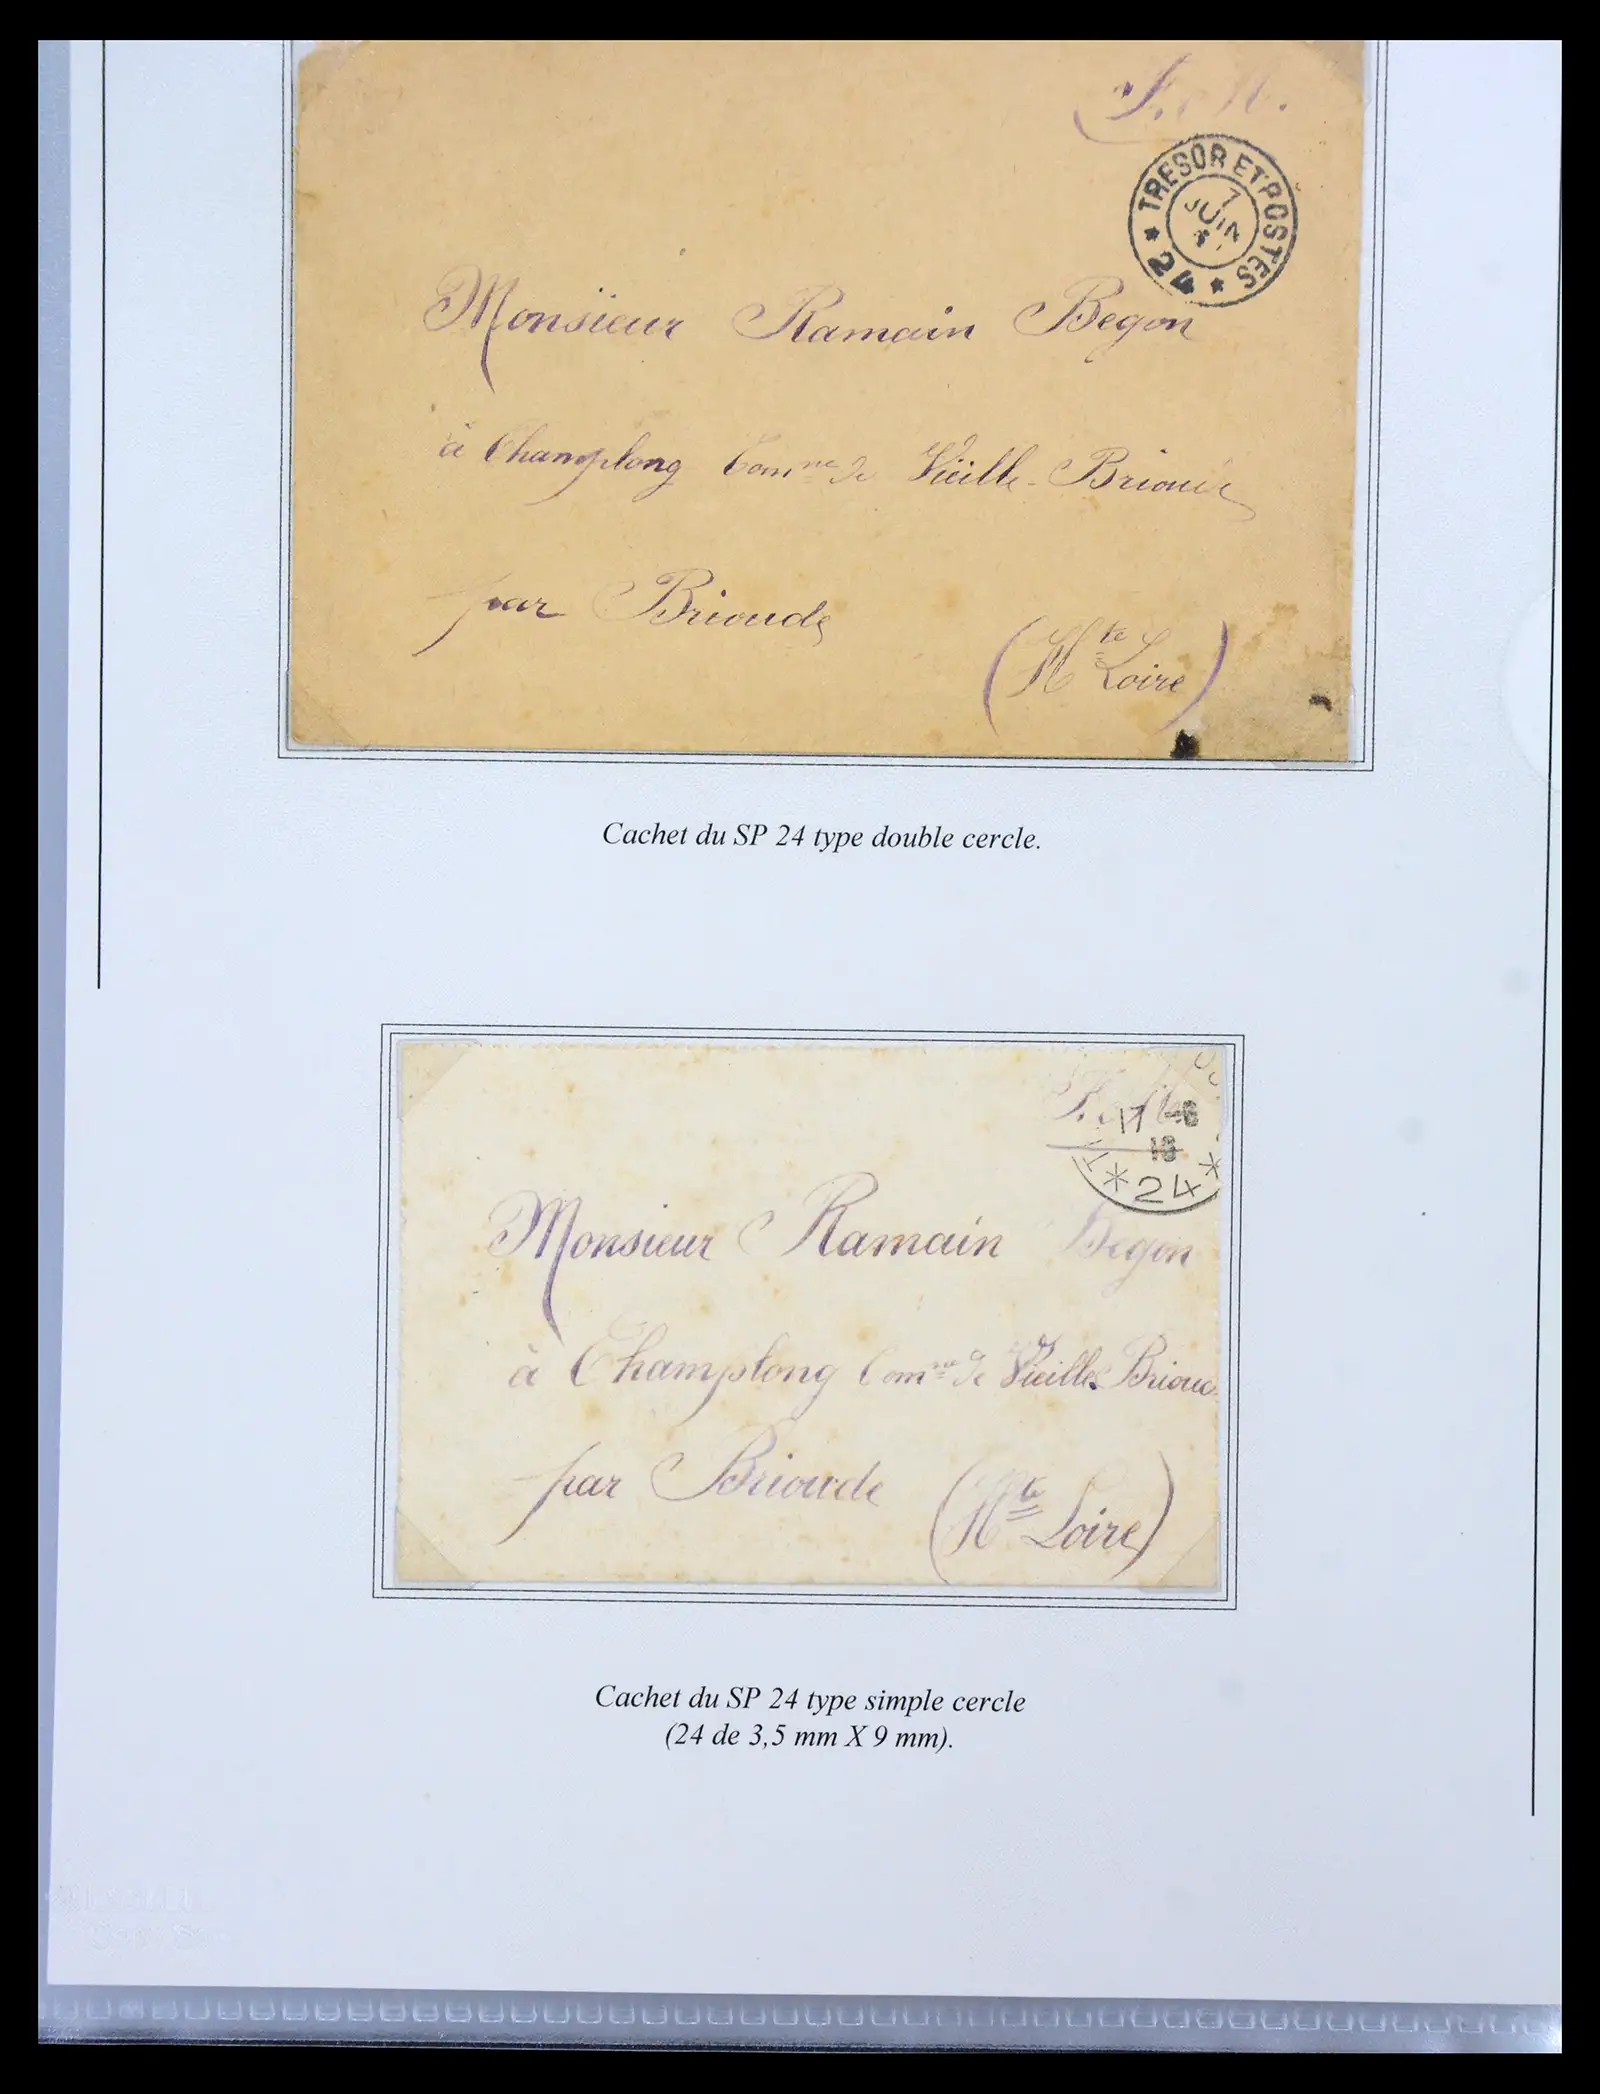 F. M.
TRESOR ET POSTES
7
JUIN
* 24 *
Monsieur Ramain Begon
à Champlong Comne de Vieille-Brioude
par Brioude
(Hte Loire)
Cachet du SP 24 type double cercle.
F. M.
17 -6
16
* 24 *
Monsieur Ramain Begon
à Champlong Comne de Vieille Briou
par Brioude
(Hte Loire)
Cachet du SP 24 type simple cercle
(24 de 3,5 mm X 9 mm).